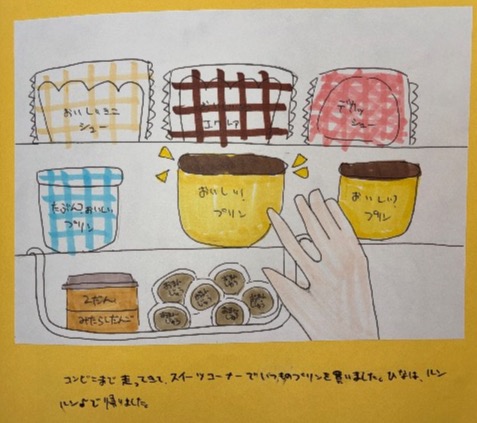 シュー
エクレア
デカッ
シュー
おいしい
プリン
おいしい!
プリン
おいしい?
プリン
みたらしだんご
おまん
じゅう
おまん
じゅう
おまん
じゅう
コンビニまで走ってきて、スイーツコーナーでいつものプリンを買いました。ひなは、ルン
ルン♪で帰りました。